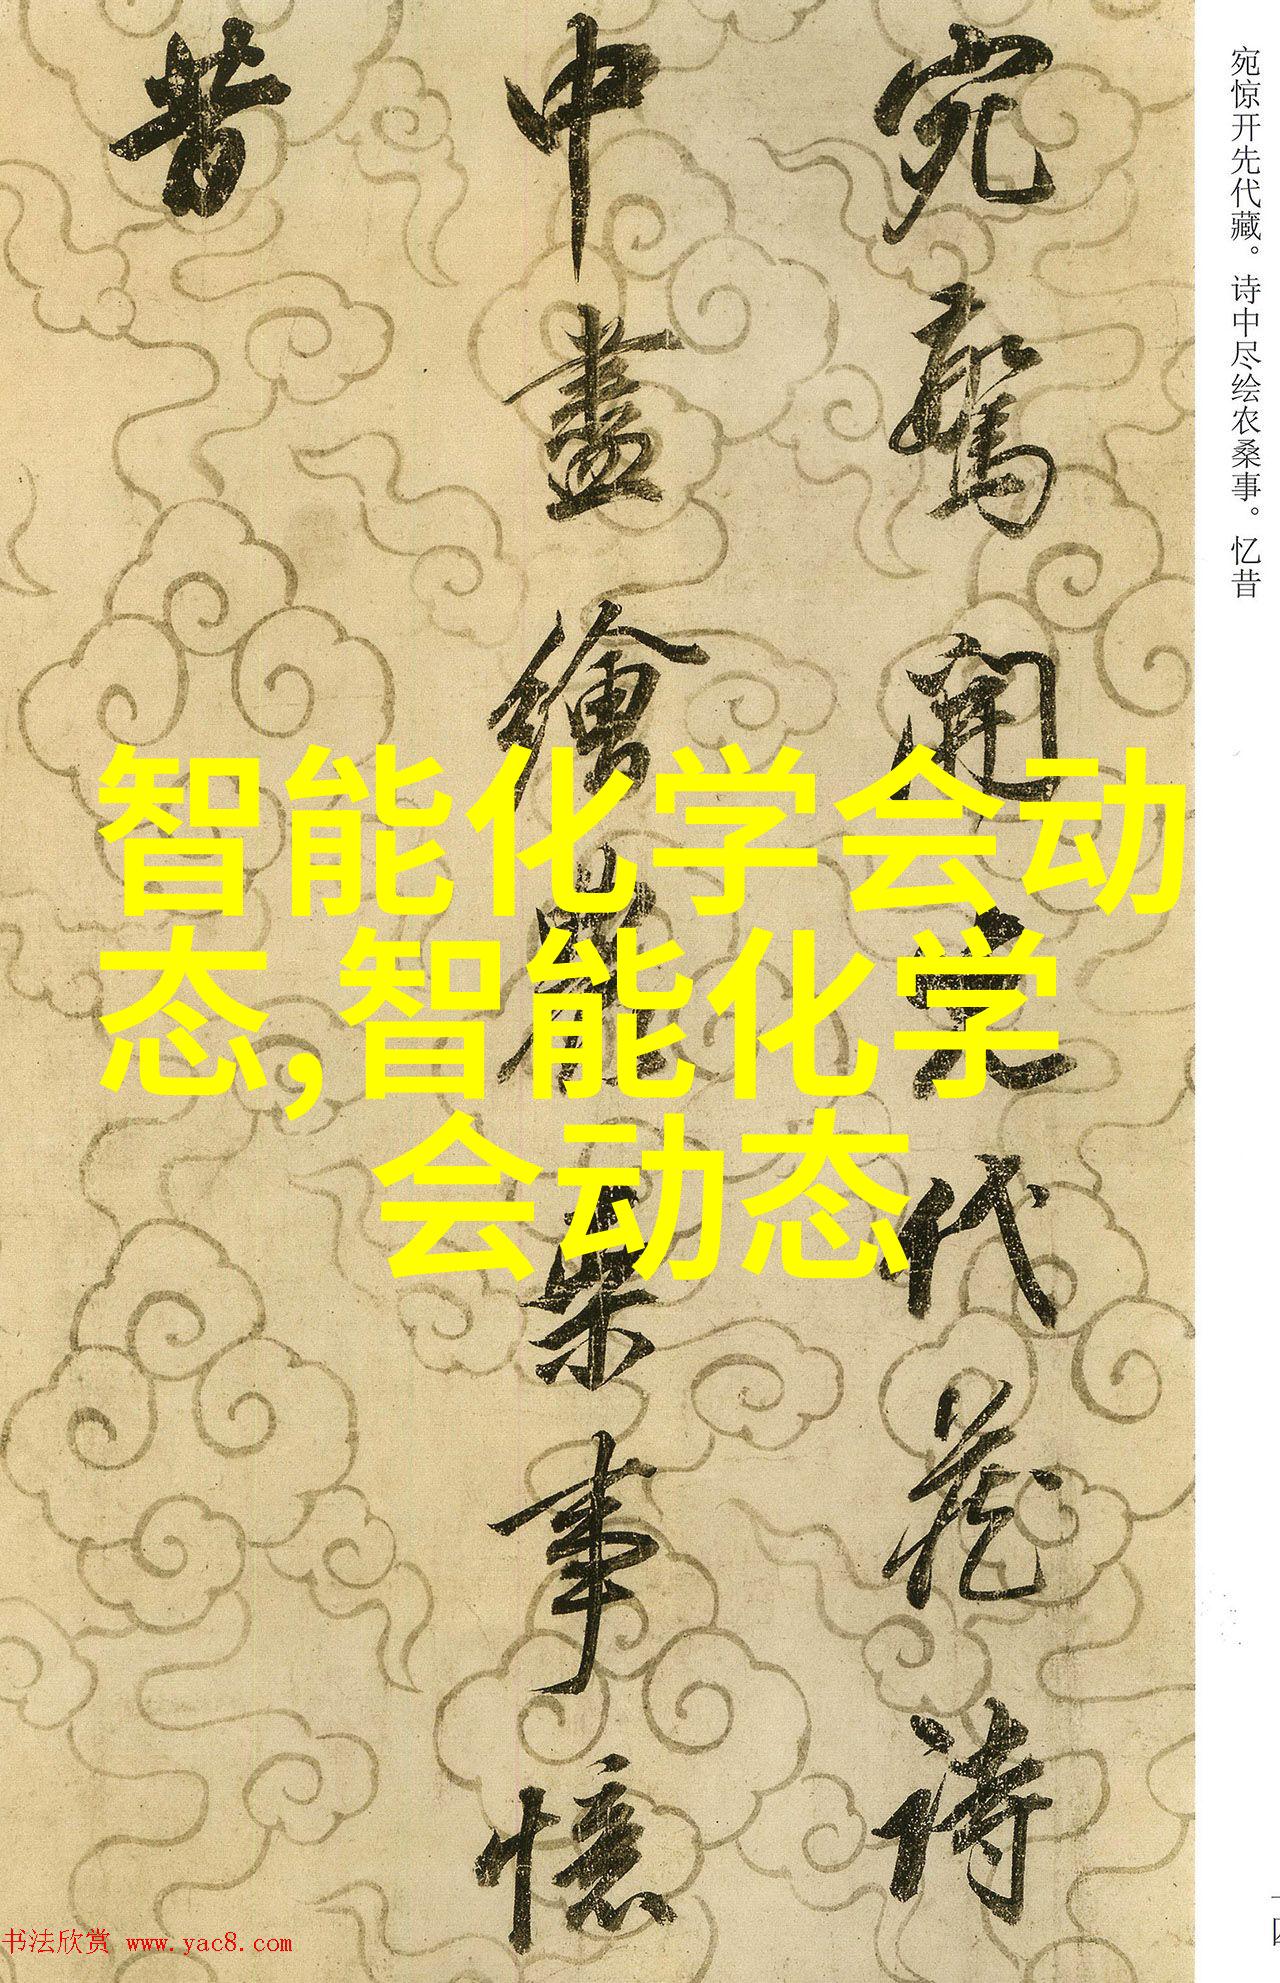 宛驚開先代藏詩
中盡繪農桒事憶
昔
宛惊开先代藏。诗中尽绘农桑事。忆昔
智能化学会动
态,智能化学
会动态
书法欣赏 www.yac8.com